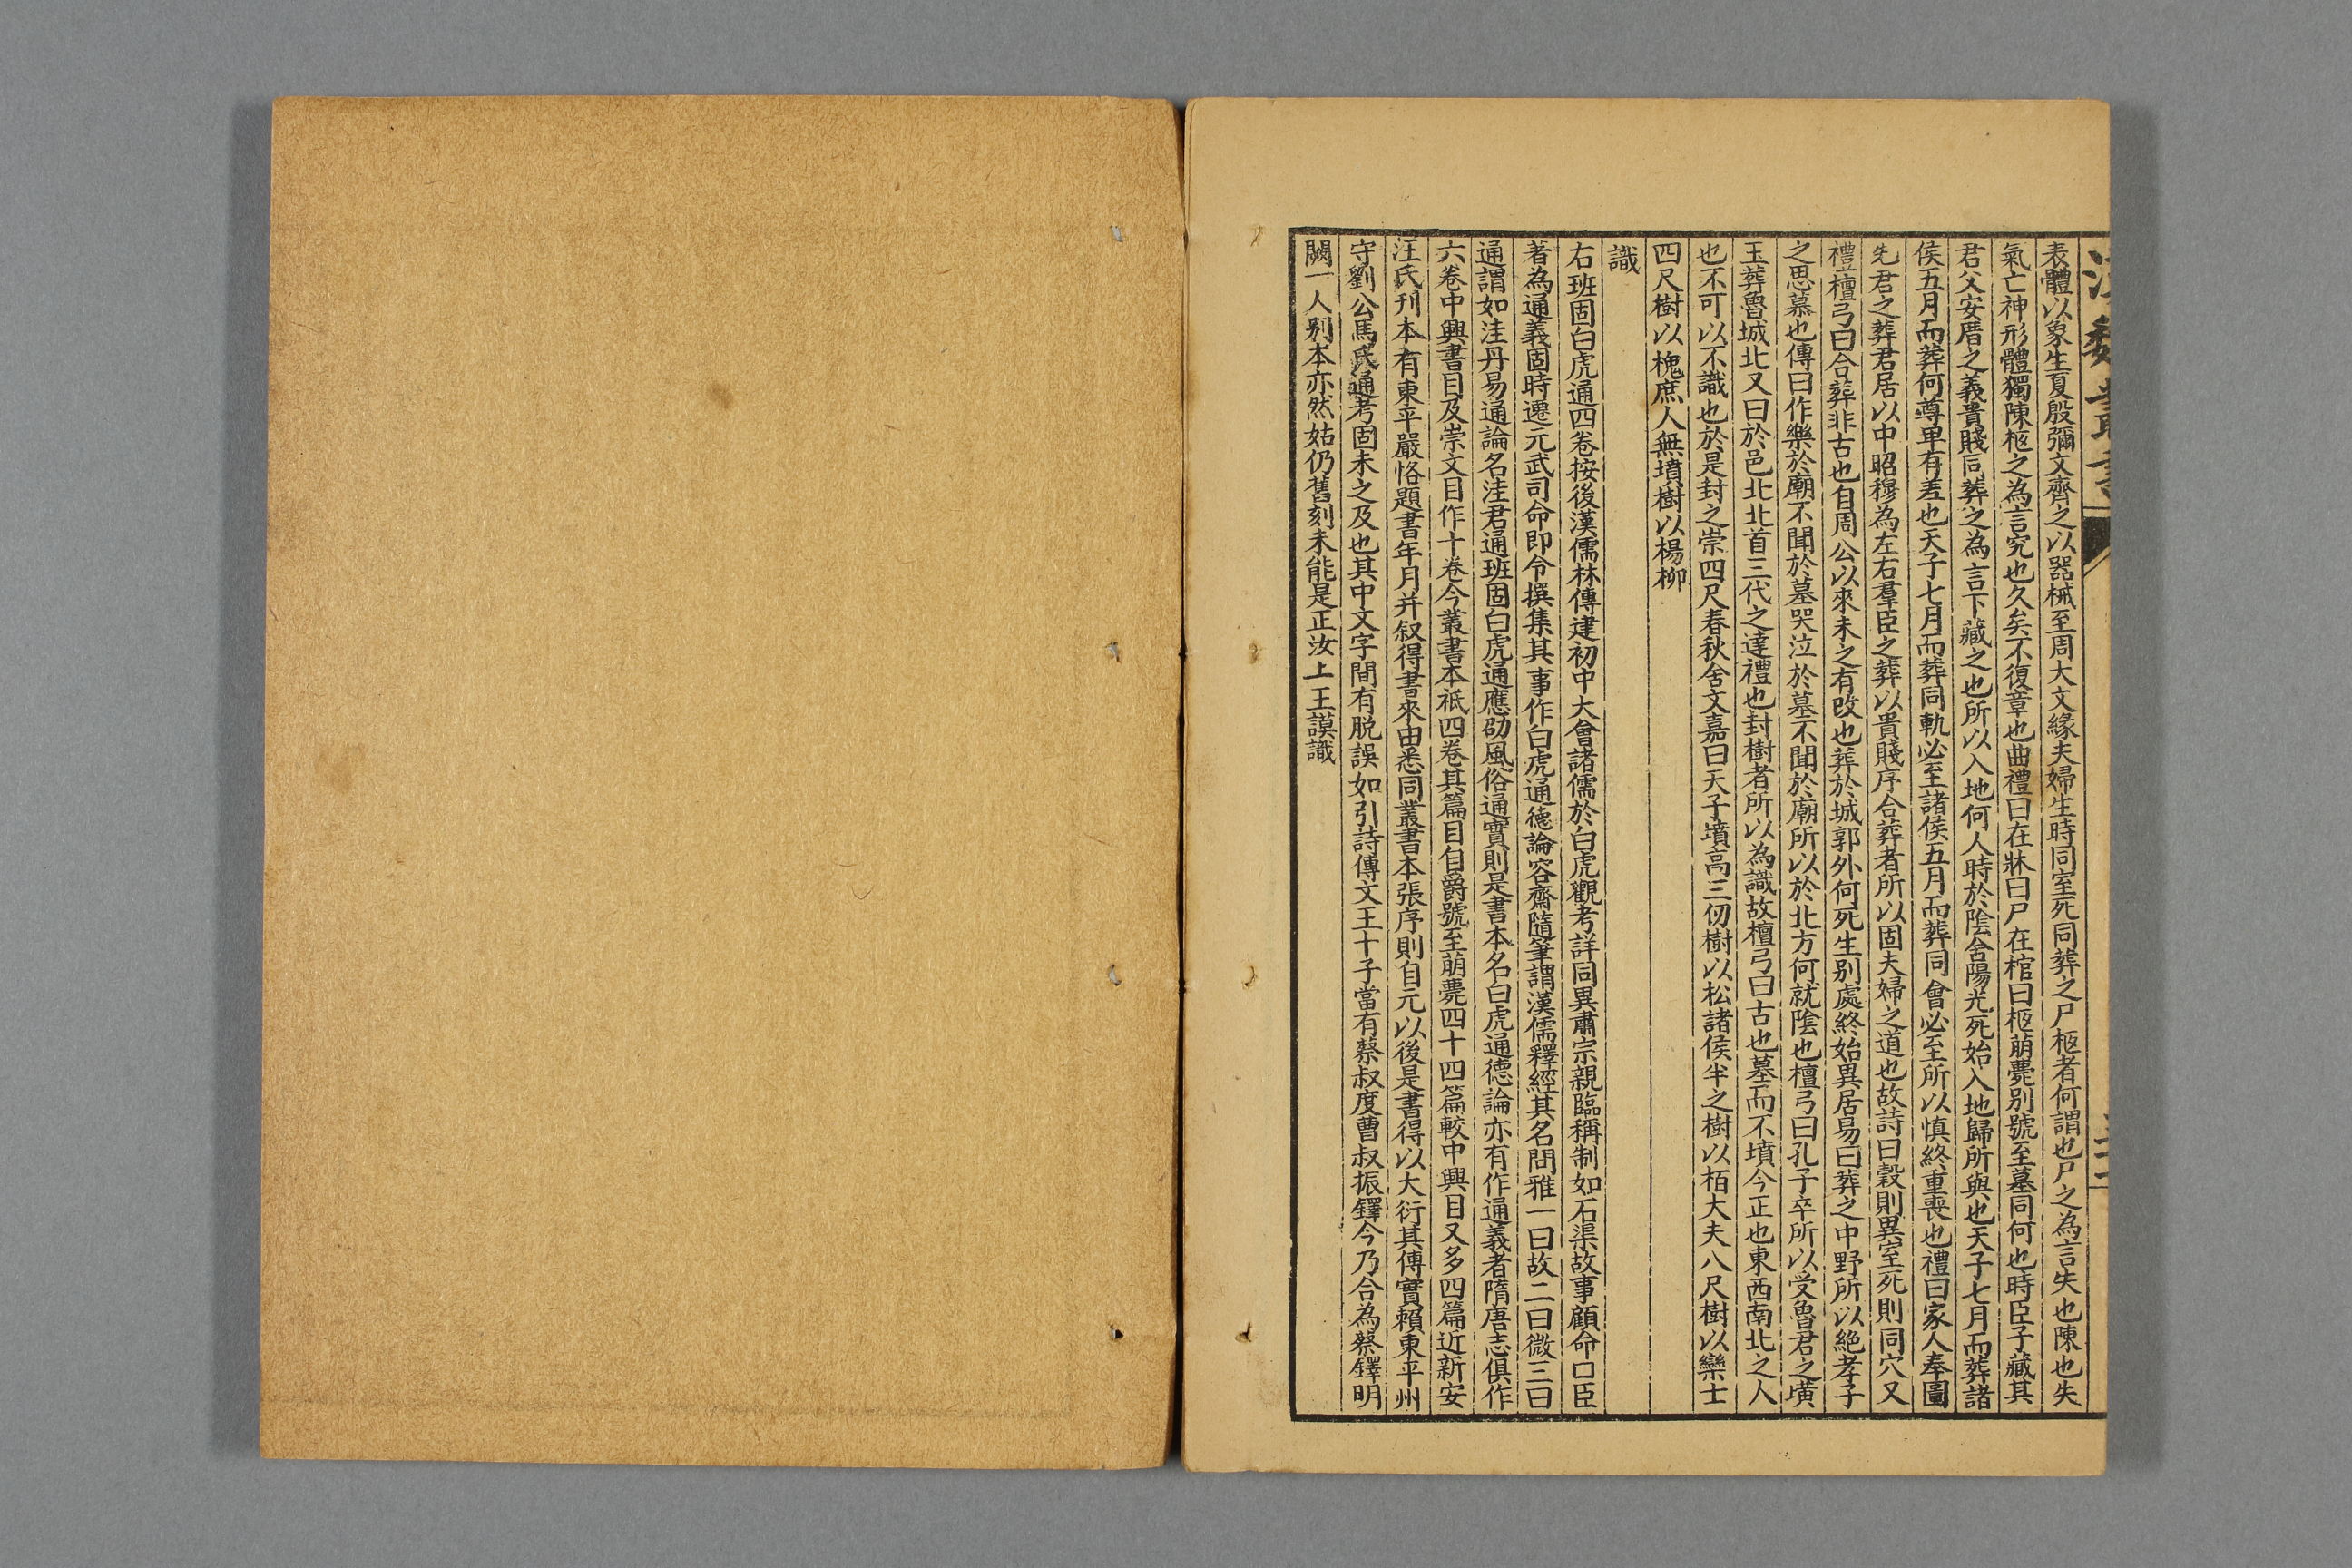 漢魏叢書
表體以象生夏殷彌文齊之以器械至周大文緣夫婦生時同室死同葬之尸柩者何謂也尸之為言失也陳也失
氣亡神形體獨陳柩之為言究也久矣不復章也曲禮曰在牀曰尸在棺曰柩崩薨别號至墓同何也時臣子藏其
君父安厝之義貴賤同葬之為言下藏之也所以入地何人時於陰含陽光死始入地歸所與也天子七月而葬諸
侯五月而葬何尊卑有差也天子七月而葬同軌必至諸侯五月而葬同會必至所以慎終重喪也禮曰家人奉圖
先君之葬君居以中昭穆為左右羣臣之葬以貴賤序合葬者所以固夫婦之道也故詩曰穀則異室死則同穴又
禮檀弓曰合葬非古也自周公以來未之有改也葬於城郭外何死生别處終始異居易曰葬之中野所以絶孝子
之思慕也傳曰作樂於廟不聞於墓哭泣於墓不聞於廟所以於北方何就陰也檀弓曰孔子卒所以受魯君之璜
玉葬魯城北又曰於邑北北首三代之達禮也封樹者所以為識故檀弓曰古也墓而不墳今正也東西南北之人
也不可以不識也於是封之崇四尺春秋含文嘉曰天子墳高三仞樹以松諸侯半之樹以栢大夫八尺樹以欒士
四尺樹以槐庶人無墳樹以楊柳
識
右班固白虎通四卷按後漢儒林傳建初中大會諸儒於白虎觀考詳同異肅宗親臨稱制如石渠故事顧命口臣
著為通義固時遷元武司命即令撰集其事作白虎通徳論容齋隨筆謂漢儒釋經其名問雅一曰故二曰微三曰
通謂如洼丹易通論名洼君通班固白虎通應劭風俗通實則是書本名白虎通徳論亦有作通義者隋唐志俱作
六卷中興書目及崇文目作十卷今叢書本祗四卷其篇目自爵號至崩薨四十四篇較中興目又多四篇近新安
汪氏刊本有東平嚴恪題書年月并叙得書來由悉同叢書本張序則自元以後是書得以大衍其傳實賴東平州
守劉公馬氏通考固未之及也其中文字間有脱誤如引詩傳文王十子當有蔡叔度曹叔振鐸今乃合為蔡鐸明
闕一人别本亦然姑仍舊刻未能是正汝上王謨識